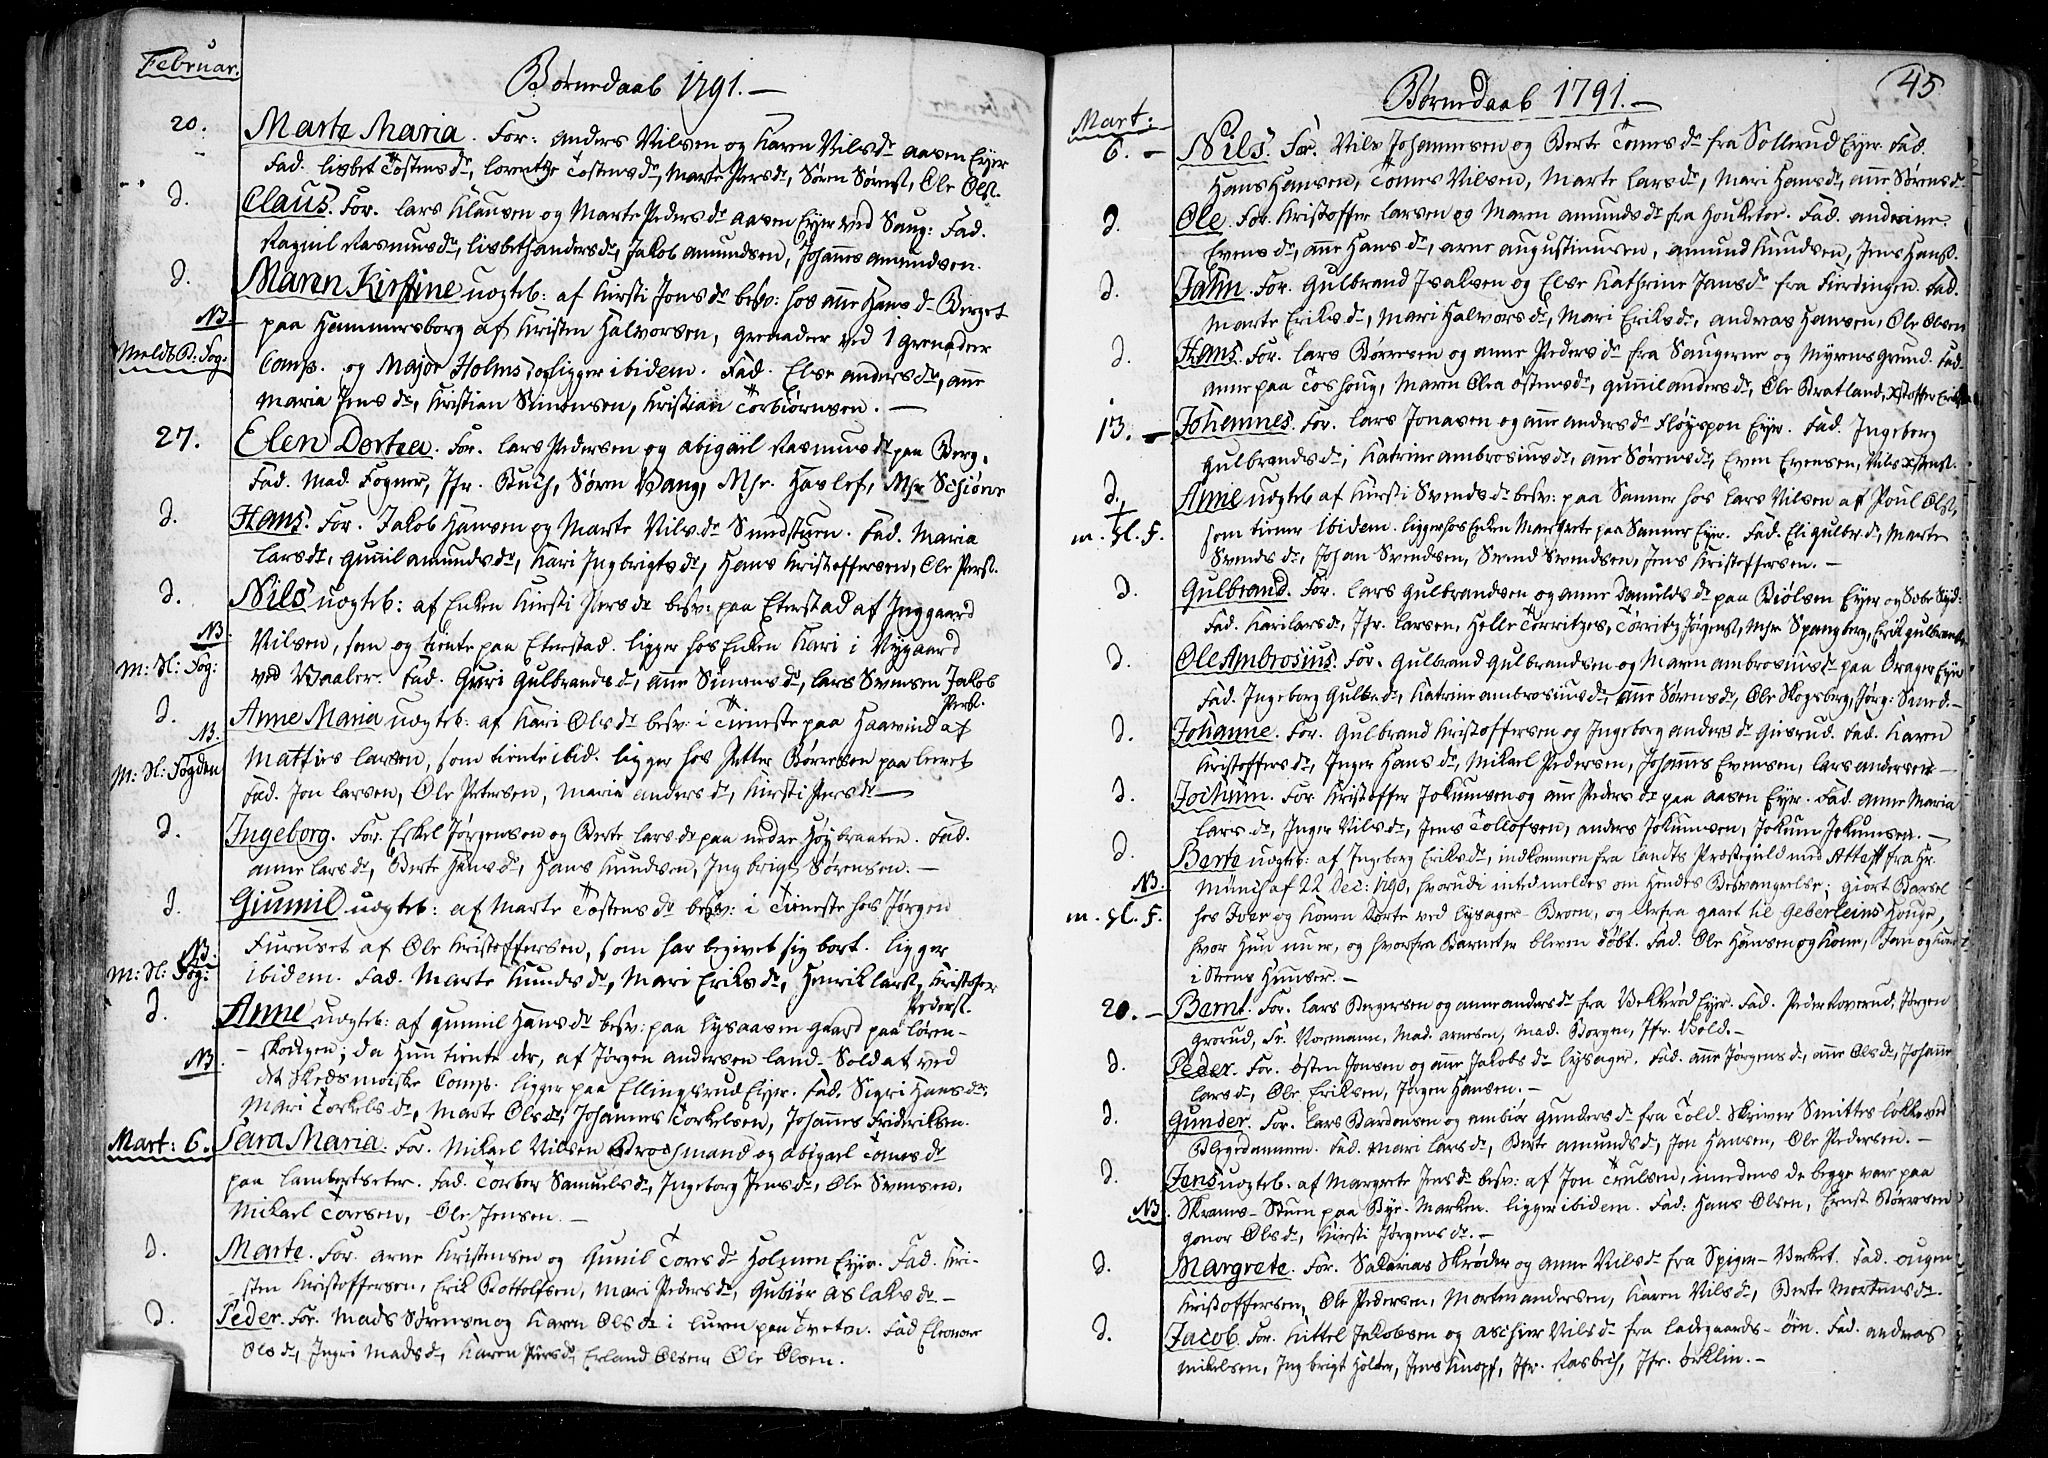 Februar.
Børnedaab 1791.
20. Marte Maria. For: Anders Nilsen og Karen Nilsdr Aasen Eyer
Fad. Lisbet Tostensdr, Lorentze Tostensdr, Marte Persdr, Søren Sørens., Ole Ols.
d. Claus. For. Lars Klausen og Marte Pedersdr Aasen Eyer ved Saug: Fad.
Ragnil Rasmusdr, Lisbeth Andersdr, Jakob Amundsen, Johannes Amundsen.
d. Maren Kirstine uægteb: af Kirsti Jonsdr besv: hos Anne Hansdr Berget
NB. paa Hammersborg af Kristen Halvorsen, Grenader ved 1 Grenader
Meldt B: Fog: Comp. og Major Holms ligger ibidem. Fad. Else Andersdr, Anne
Maria Jensdr, Kristian Simensen, Kristian Torbiørnsen. —
27. Elen Dortea. For. Lars Pedersen og Abigael Rasmusdr paa Berg.
Fad. Mad. Fogner, Jfr. Buch, Søren Vang, Msr. Haslef, Msr Schiøne
d. Hans. For. Jakob Hansen og Marte Nilsdr Smedstuen. Fad. Maria
Larsdr, Gunnil Amundsdr, Kari Ingbrigtsdr, Hans Kristoffersen, Ole Pers.
d. Nils uægteb: af Enken Kirsti Persdr besv: paa Eterstad af Inggaard
NB. Nilsen, som og tiente paa Eterstad. ligger hos Enken Kari i Nygaard
M: Sl: Fog: ved Vaaler. Fad. Guri Gulbrandsdr, Anne Simensdr, Lars Svensen Jakob
Pers.
d. Anne Maria uægteb: af Kari Olsdr besv: i Tieneste paa Haavind af
NB. Matties Larsen, som tiente ibid. ligger hos Petter Børresen paa Leeret
M: Sl: Fogden Fad. Jon Larsen, Ole Petersen, Maria Andersdr, Kirsti Persdr —
d. Ingeborg. For. Eskel Jørgensen og Berte Larsdr paa nedre Høybraaten. Fad.
Anne Larsdr, Berte Hansdr, Hans Knudsen, Ingbrigt Sørensen. —
d. Giunnil uægteb: af Marte Tostensdr besv: i Tieneste hos Jørgen
NB. Furuset af Ole Kristoffersen, som har begivet sig bort. ligger
M: Sl: Fog: ibidem. Fad. Marte Knudsdr, Mari Eriksdr, Henrik Lars., Kristofer
Peders.
d. Anne uægteb: af Gunnil Hansdr besv: paa Lysaasen Gaard paa Løren-
NB. skougen; da hun tiente der, af Jørgen Andersen Land-Soldat ved
det Skedsmoiske Comp. ligger paa Ellingsrud Eyer. Fad. Sigri Hansdr,
Mari Torkelsdr, Marte Olsdr, Johannes Torkelsen, Johannes Frideriksen.
Mart: 6. Sara Maria. For. Mikael Nilsen Brochmand og Abigael Tomesdr
paa Lambertseter. Fad. Torber Samuelsdr, Ingeborg Jensdr, Ole Svensen,
Mikael Toresen, Ole Jensen. —
d. Marte. For. Arne Kristensen og Gunil Toresdr Holmen Eyer. Fad. Kri-
sten Kristoffersen, Erik Bottolfsen, Mari Pedersdr, Gubiør Aslaksdr —
d. Peder. For. Mads Sørensen og Karen Olsdr i Luren paa Tveten. Fad Eleonore
Olsdr, Ingri Madsdr, Karen Persdr, Erland Olsen, Ole Olsen.
45
Børnedaab 1791. —
Mart:
6. — Nils. For. Nils Johannesen og Berte Tomesdr fra Sollerud Eyer. Fad.
Hans Hansen, Tomes Nilsen, Marte Larsdr, Mari Hansdr, Anne Sørensdr
d. Ole. For. Kristoffer Larsen og Maren Amundsdr fra Houketoe. Fad. Andesine
Evensdr, Anne Hansdr, Arne Augustinusen, Amund Knudsen, Jens Hans.
d. Jahn. For. Gulbrand Isaksen og Else Kathrine Jansdr fra Fierdingen. Fad.
Marte Eriksdr, Mari Halvorsdr, Mari Eriksdr, Andreas Hansen, Ole Olsen
d. Hans. For. Lars Børresen og Anne Pedersdr fra Saugerne og Myrens Grund. Fad.
Anne paa Toshoug, Maren Olea Østensdr, Gunnil Andersdr, Ole Bratland, Xstoffer Eriks.
13. — Johannes. For. Lars Jonasen og Anne Andersdr Fløyspon Eyer. Fad. Ingeborg
Gulbrandsdr, Katrine Ambrosiusdr, Anne Sørensdr, Even Evensen, Nils Xstens.
d. Anne uægteb af Kirsti Svendsdr besv: paa Sanner hos Lars Nilsen af Poul Ols.,
m. Sl. F. som tiener ibidem. ligger hos Enken Margrete paa Sanner Eyer. Fad. Eli Gulbr.dr, Marte
Svendsdr, Johan Svendsen, Svend Svendsen, Jens Kristoffersen. —
d. Gulbrand. For. Lars Gulbrandsen og Anne Danieldsdr paa Biølsen Eyer og Sæbe Syd:
Fad. Kari Larsdr, Jfr. Larsen, Helle Torritzes, Torritz Jørgens., Msr. Spangberg, Erik Gulbrands.
d. Ole Ambrosius. For. Gulbrand Gulbrandsen og Maren Ambrosiusdr paa Brager Eyer
Fad. Ingeborg Gulbr.dr, Katrine Ambrosiusdr, Anne Sørensdr, Ole Skogsberg, Jørg: Smed. —
d. Johanne. For. Gulbrand Kristoffersen og Ingeborg Andersdr Giesrud. Fad. Karen
Kristoffersdr, Inger Hansdr, Mikael Pedersen, Johannes Evensen, Lars Andersen —
d. Jochum. For. Kristoffer Jokumsen og Anne Pedersdr paa Aasen Eyer. Fad. Anne Maria
Larsdr, Inger Nilsdr, Jens Tollofsen, Anders Jokumsen, Jokum Jokumsen. —
d. Berte uægteb: af Ingeborg Eriksdr, indkommen fra Landts Præstegield med Attest fra Hr.
NB. Münch af 22 Dec: 1790, hvorudi intet meldes om hendes Besvangrelse; giort Barsel
m. Sl. F. hos Iver og Konen Korte ved Lysager-Broen, og derfra gaaet til Geberleins Houge,
hvor hun nu er, og hvorfra Barnet er bleven døbt. Fad. Ole Hansen og Kone, Jan og Kone
i Steens Huuser. —
20. — Bernt. For. Lars Bergersen og Anne Andersdr fra Vekkerød Eyer. Fad. Peder Roverud, Jørgen
Grorud, Fr. Normann, Mad. Arnesen, Mad. Borgen, Jfr. Bold. —
d. Peder. For. Østen Jonsen og Anne Jakobsdr Lysager. Fad. Anne Jørgensdr, Anne Olsdr, Johanne
Larsdr, Ole Eriksen, Jørgen Hansen. —
d. Gunder. For. Lars Bardonsen og Ambiør Gundersdr fra Told. Skriver Smittes Løkke ved
Blegedammen. Fad. Mari Larsdr, Berte Amundsdr, Jon Hansen, Ole Pedersen. —
d. Jens uægteb. af Margrete Jensdr besv: af Jon Trulsen, imedens de begge var paa
NB. Skrams-Stuen paa Bye-Marken. ligger ibidem. Fad: Hans Olsen, Ernst Børresen
Gonor Olsdr, Kirsti Jørgensdr. —
d. Margrete. For. Sakarias Skrøder og Anne Nilsdr fra Spiger-Verket. Fad. Ougen
Kristoffersen, Ole Pedersen, Morten Andersen, Karen Nilsdr, Berte Mortensdr.
d. Jacob. For. Kittel Jakobsen og Aschier Nilsdr fra Ladegaards-Øen. Fad. Andreas
Mikelsen, Ingbrigt Holter, Jens Knopf, Jfr. Rasbech, Jfr. Ørklin. —